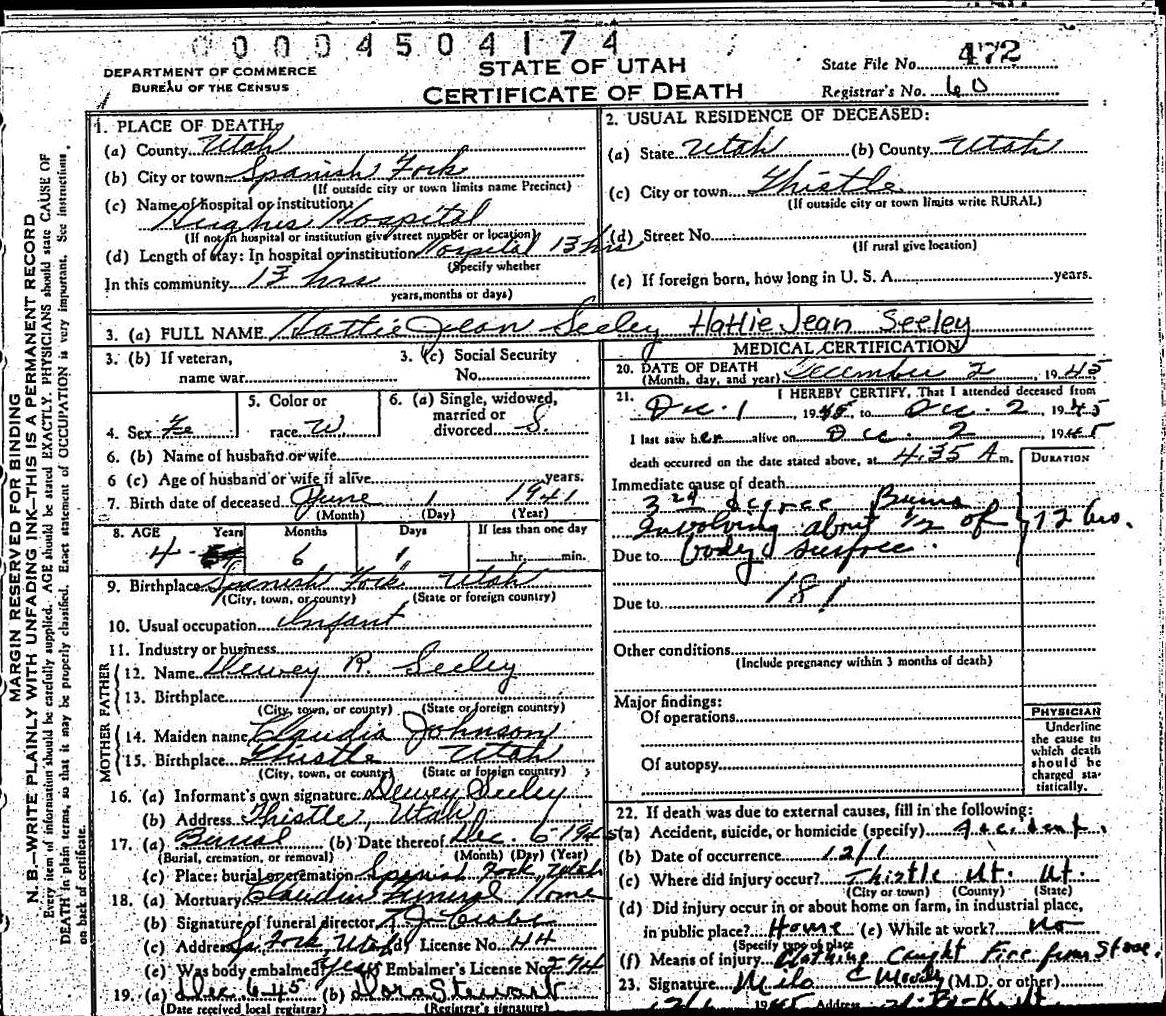 0 0 0 0 4 5 0 4 1 7 4
DEPARTMENT OF COMMERCE
BUREAU OF THE CENSUS
STATE OF UTAH
CERTIFICATE OF DEATH
State File No. 472
Registrar's No. 60
MARGIN RESERVED FOR BINDING
N. B.—WRITE PLAINLY WITH UNFADING INK—THIS IS A PERMANENT RECORD
Every item of information should be carefully supplied. AGE should be stated EXACTLY. PHYSICIANS should state CAUSE OF
DEATH in plain terms, so that it may be properly classified. Exact statement of OCCUPATION is very important. See instructions
on back of certificate.
1. PLACE OF DEATH:
(a) County Utah
(b) City or town Spanish Fork
(If outside city or town limits name Precinct)
(c) Name of hospital or institution:
Hughes Hospital
(If not in hospital or institution give street number or location)
(d) Length of stay: In hospital or institution Hospital 13 hrs
(Specify whether
In this community 13 hrs
years, months or days)
2. USUAL RESIDENCE OF DECEASED:
(a) State Utah (b) County Utah
(c) City or town Thistle
(If outside city or town limits write RURAL)
(d) Street No.
(If rural give location)
(e) If foreign born, how long in U. S. A. years.
3. (a) FULL NAME Hattie Jean Seeley Hattie Jean Seeley
3. (b) If veteran,
name war
3. (c) Social Security
No.
4. Sex Fe
5. Color or
race W.
6. (a) Single, widowed,
married or
divorced S.
6. (b) Name of husband or wife
6 (c) Age of husband or wife if alive years.
7. Birth date of deceased June 1 1941
(Month) (Day) (Year)
8. AGE Years Months Days If less than one day
4 6 1 hr. min.
9. Birthplace Spanish Fork Utah
(City, town, or county) (State or foreign country)
10. Usual occupation Infant
11. Industry or business
FATHER
12. Name Dewey R. Seeley
13. Birthplace
(City, town, or county) (State or foreign country)
MOTHER
14. Maiden name Claudia Johnson
15. Birthplace Thistle Utah
(City, town, or county) (State or foreign country)
16. (a) Informant's own signature Dewey Seeley
(b) Address Thistle, Utah
17. (a) Burial (b) Date thereof Dec. 6 1945
(Burial, cremation, or removal) (Month) (Day) (Year)
(c) Place: burial or cremation Spanish Fork, Utah
18. (a) Mortuary Claudin Funeral Home
(b) Signature of funeral director
(c) Address Sp Fork Utah (d) License No. 44
(e) Was body embalmed? yes Embalmer's License No. 274
19. (a) Dec 6 45 (b) Dora Stewart
(Date received local registrar) (Registrar's signature)
MEDICAL CERTIFICATION
20. DATE OF DEATH
(Month, day, and year) December 2, 1945
21. I HEREBY CERTIFY, That I attended deceased from
Dec. 1, 1945, to Dec. 2 1945
I last saw her alive on Dec. 2, 1945
death occurred on the date stated above, at 4:35 A m.
DURATION
Immediate cause of death
3rd degree Burns
involving about 1/2 of
12 hrs.
Due to body surface.
Due to 181
Other conditions
(Include pregnancy within 3 months of death)
Major findings:
Of operations
Of autopsy
PHYSICIAN
Underline
the cause to
which death
should be
charged sta-
tistically.
22. If death was due to external causes, fill in the following:
(a) Accident, suicide, or homicide (specify) Accident.
(b) Date of occurrence 12/1
(c) Where did injury occur? Thistle Ut. Ut.
(City or town) (County) (State)
(d) Did injury occur in or about home on farm, in industrial place,
in public place? Home (e) While at work? no
(Specify type of place
(f) Means of injury Clothing caught Fire from Stove.
23. Signature Milo C Moody (M.D. or other)
1945 Address